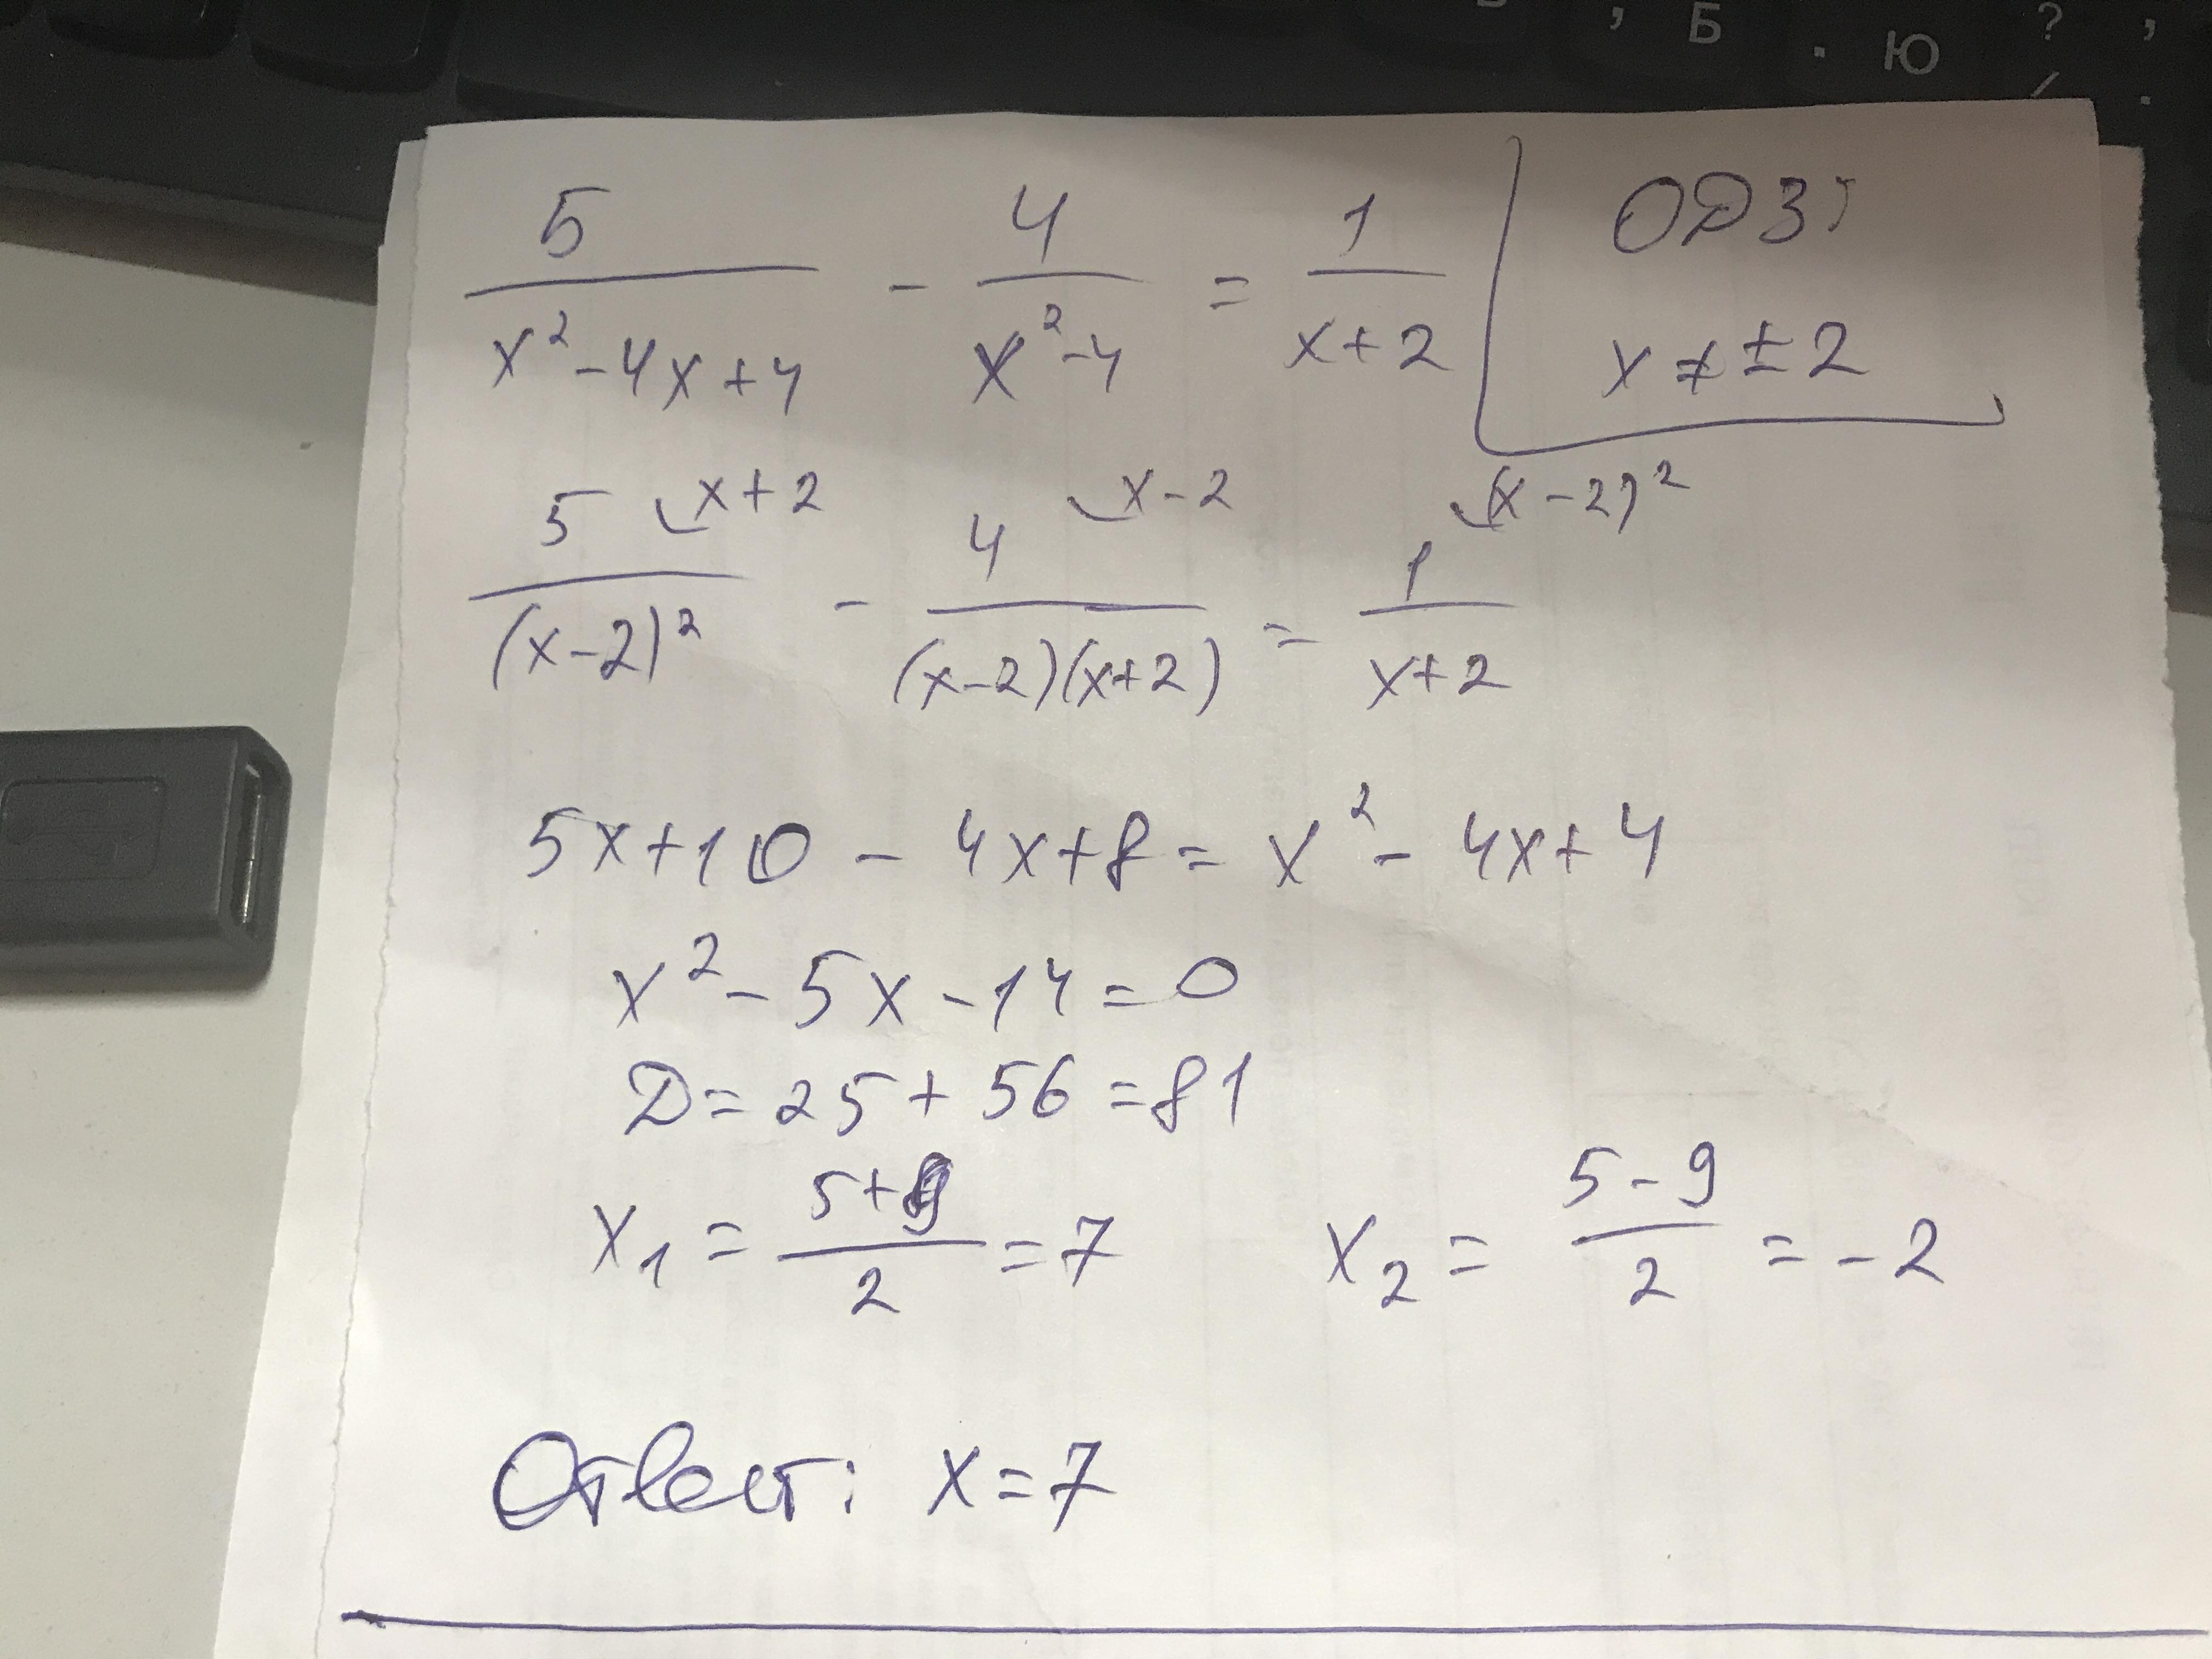 Б Ю ?
5/(x² - 4x + 4) - 4/(x² - 4) = 1/(x + 2)
ОДЗ:
x ≠ ± 2
5/(x-2)² - 4/((x-2)(x+2)) = 1/(x+2)
x+2 x-2 (x-2)²
5x + 10 - 4x + 8 = x² - 4x + 4
x² - 5x - 14 = 0
D = 25 + 56 = 81
x₁ = (5+9)/2 = 7 x₂ = (5-9)/2 = -2
Ответ: x = 7